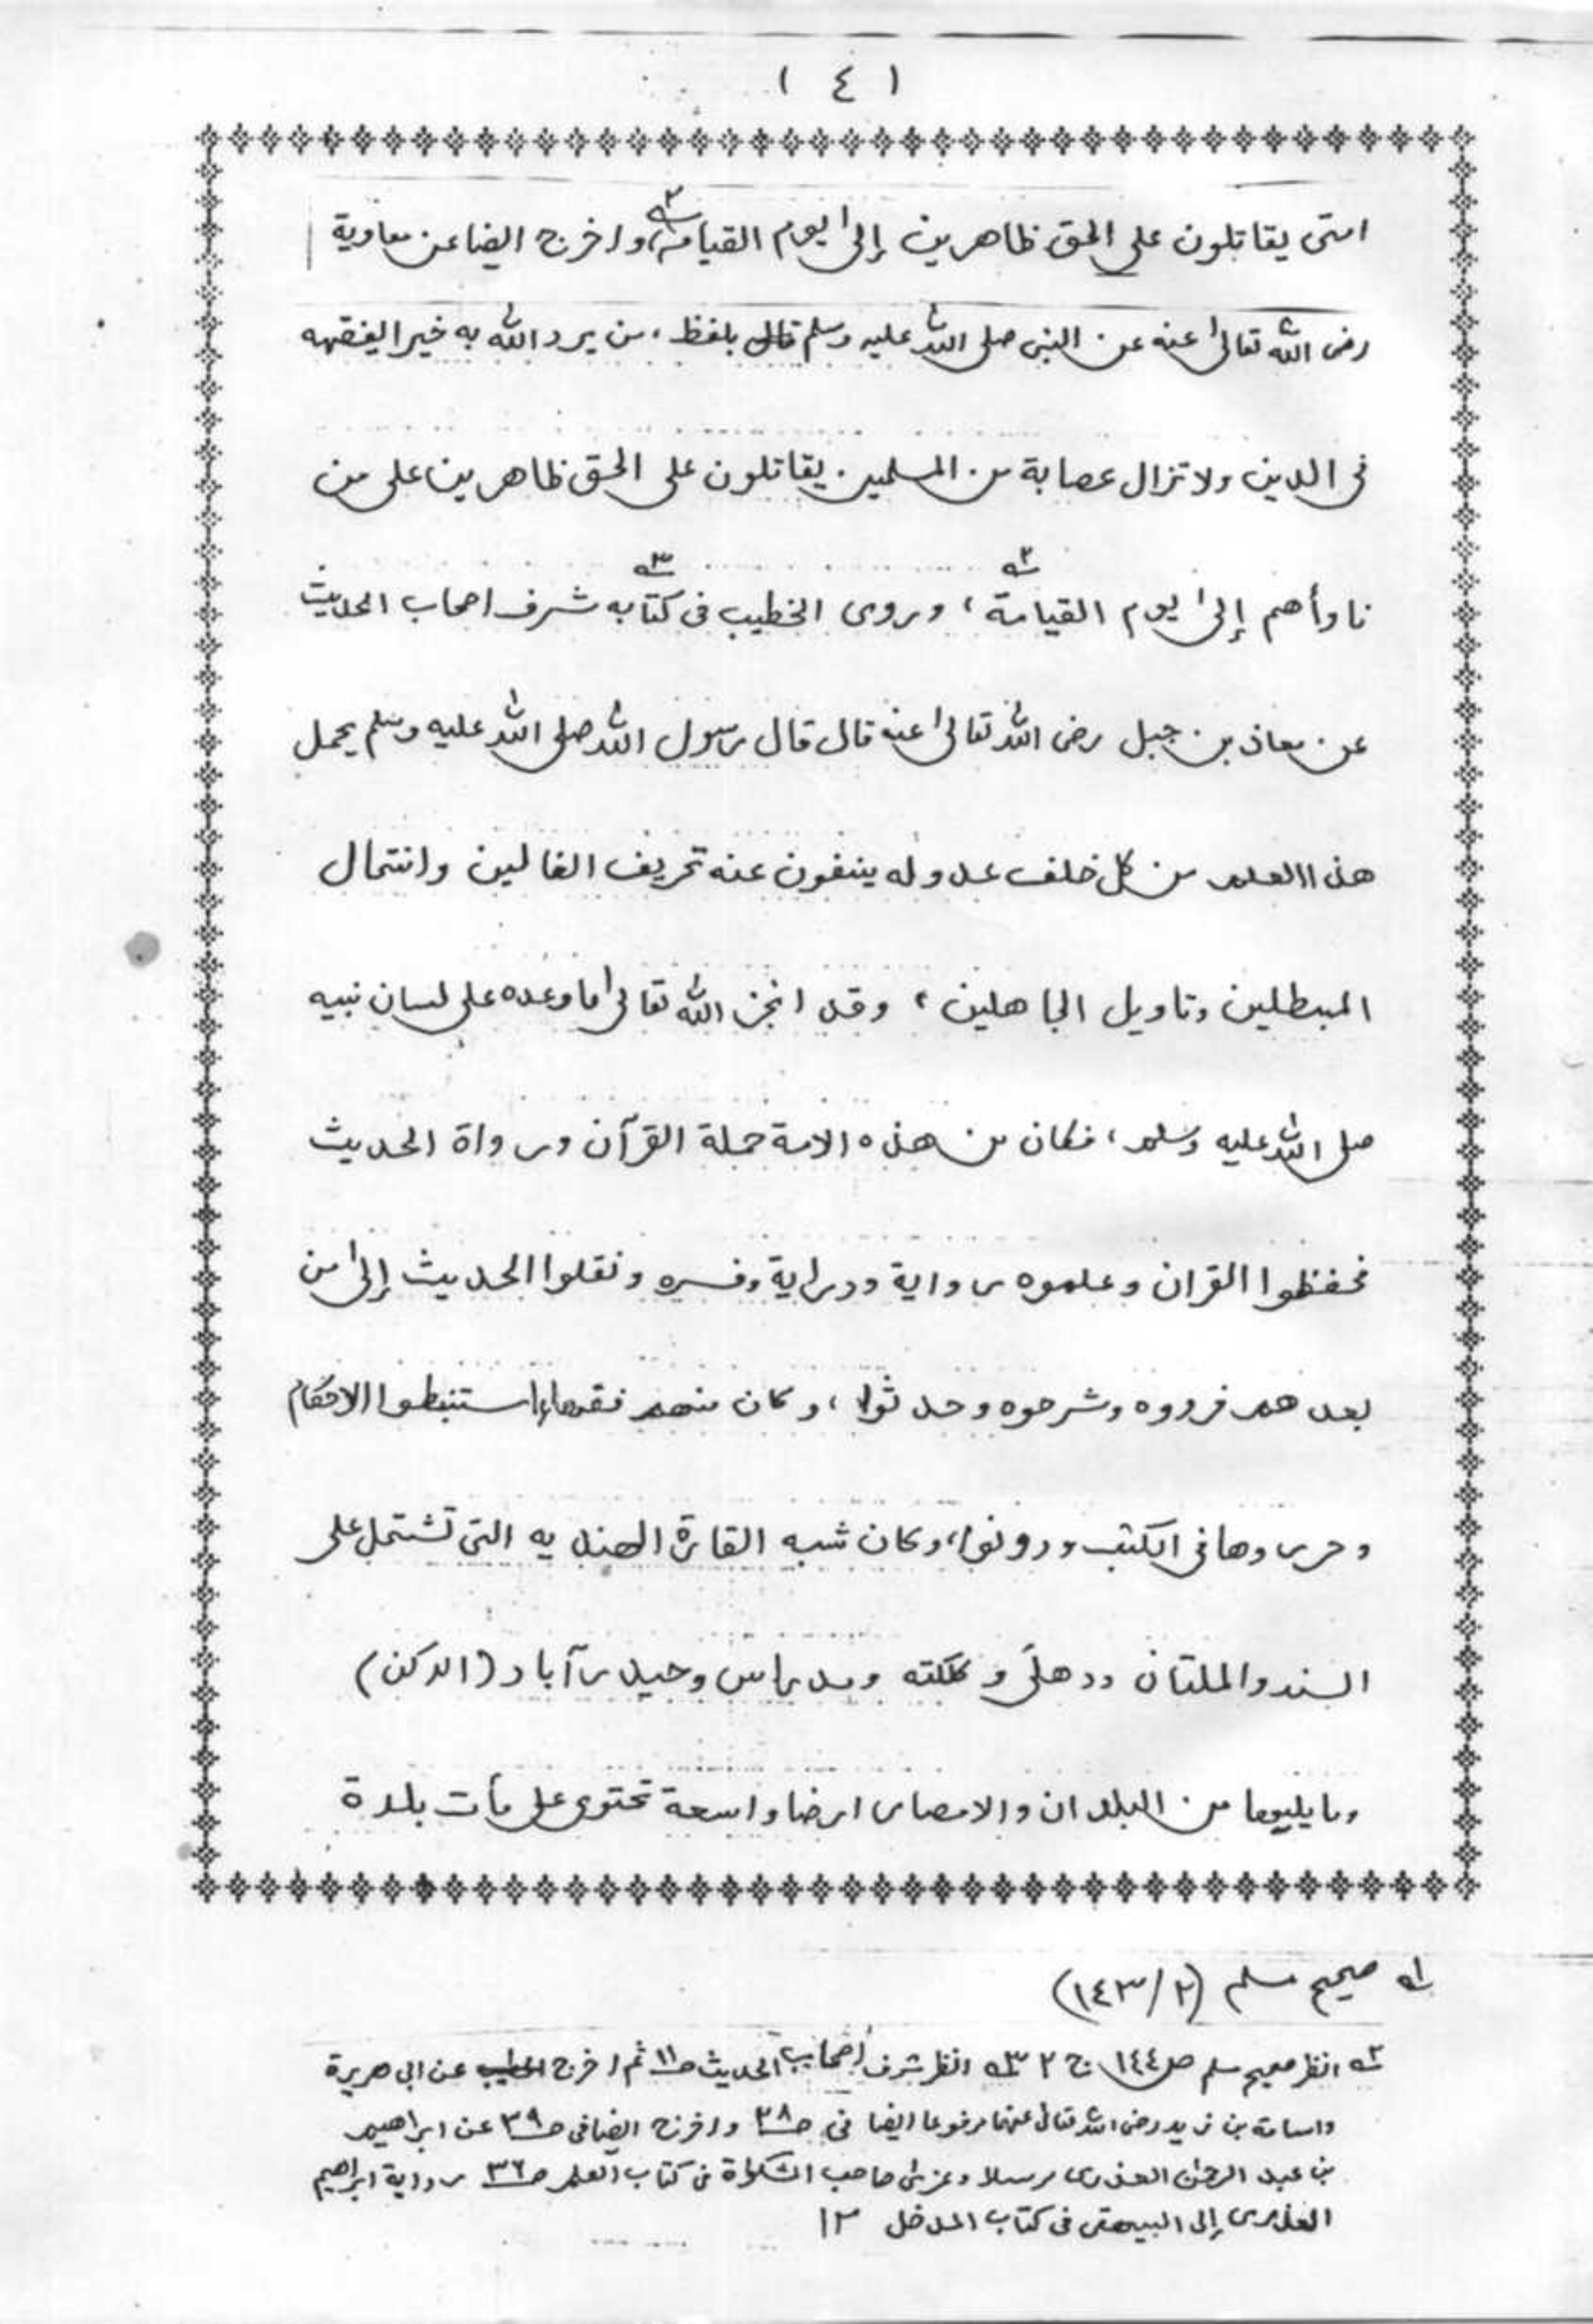 ( ٤ )
امتى يقاتلون على الحق ظاهرين إلى يوم القيامة، واخرج ايضا عن معاوية
رضى الله تعالى عنه عن النبى صلى الله عليه وسلم قال بلفظ، من يرد الله به خيرا يفقهه
فى الدين ولا تزال عصابة من المسلمين يقاتلون على الحق ظاهرين على من
ناوأهم إلى يوم القيامة ٢، وروى الخطيب فى كتابه ٣ شرف اصحاب الحديث
عن معاذ بن جبل رضى الله تعالى عنه قال قال رسول الله صلى الله عليه وسلم يحمل
هذا العلم من كل خلف عدوله ينفون عنه تحريف الغالين وانتحال
المبطلين وتاويل الجاهلين، وقد انجز الله تعالى ما وعده على لسان نبيه
صلى الله عليه وسلم، فكان من هذه الامة حملة القرآن ورواة الحديث
فحفظوا القران وعلموه رواية ودراية وفسره ونقلوا الحديث إلى من
بعدهم فرووه وشرحوه وحدثوا، وكان منهم فقهاء استنبطوا الاحكام
وحرروها فى الكتب ودونوا، وكان شبه القارة الهنديه التى تشتمل على
السند والملتان ودهلى وكلكته ومدراس وحيدرآباد (الدكن)
وما يليها من البلدان والامصار ارضا واسعة تحتوى على مأت بلدة
١ صحيح مسلم (٢/١٤٣)
٢ انظر صحيح مسلم ص ١٤٤ ج ٢ ٣ انظر شرف اصحاب الحديث ص ١١ ثم اخرج الخطيب عن ابى هريرة
واسامة بن زيد رضى الله تعالى عنهما مرفوعا ايضا فى ص ٢٨ واخرج ايضا فى ص ٢٩ عن ابراهيم
بن عبد الرحمن العذرى مرسلا وعزى صاحب المشكواة فى كتاب العلم ص ٣٦ رواية ابراهيم
العذرى إلى البيهقى فى كتاب المدخل ١٢